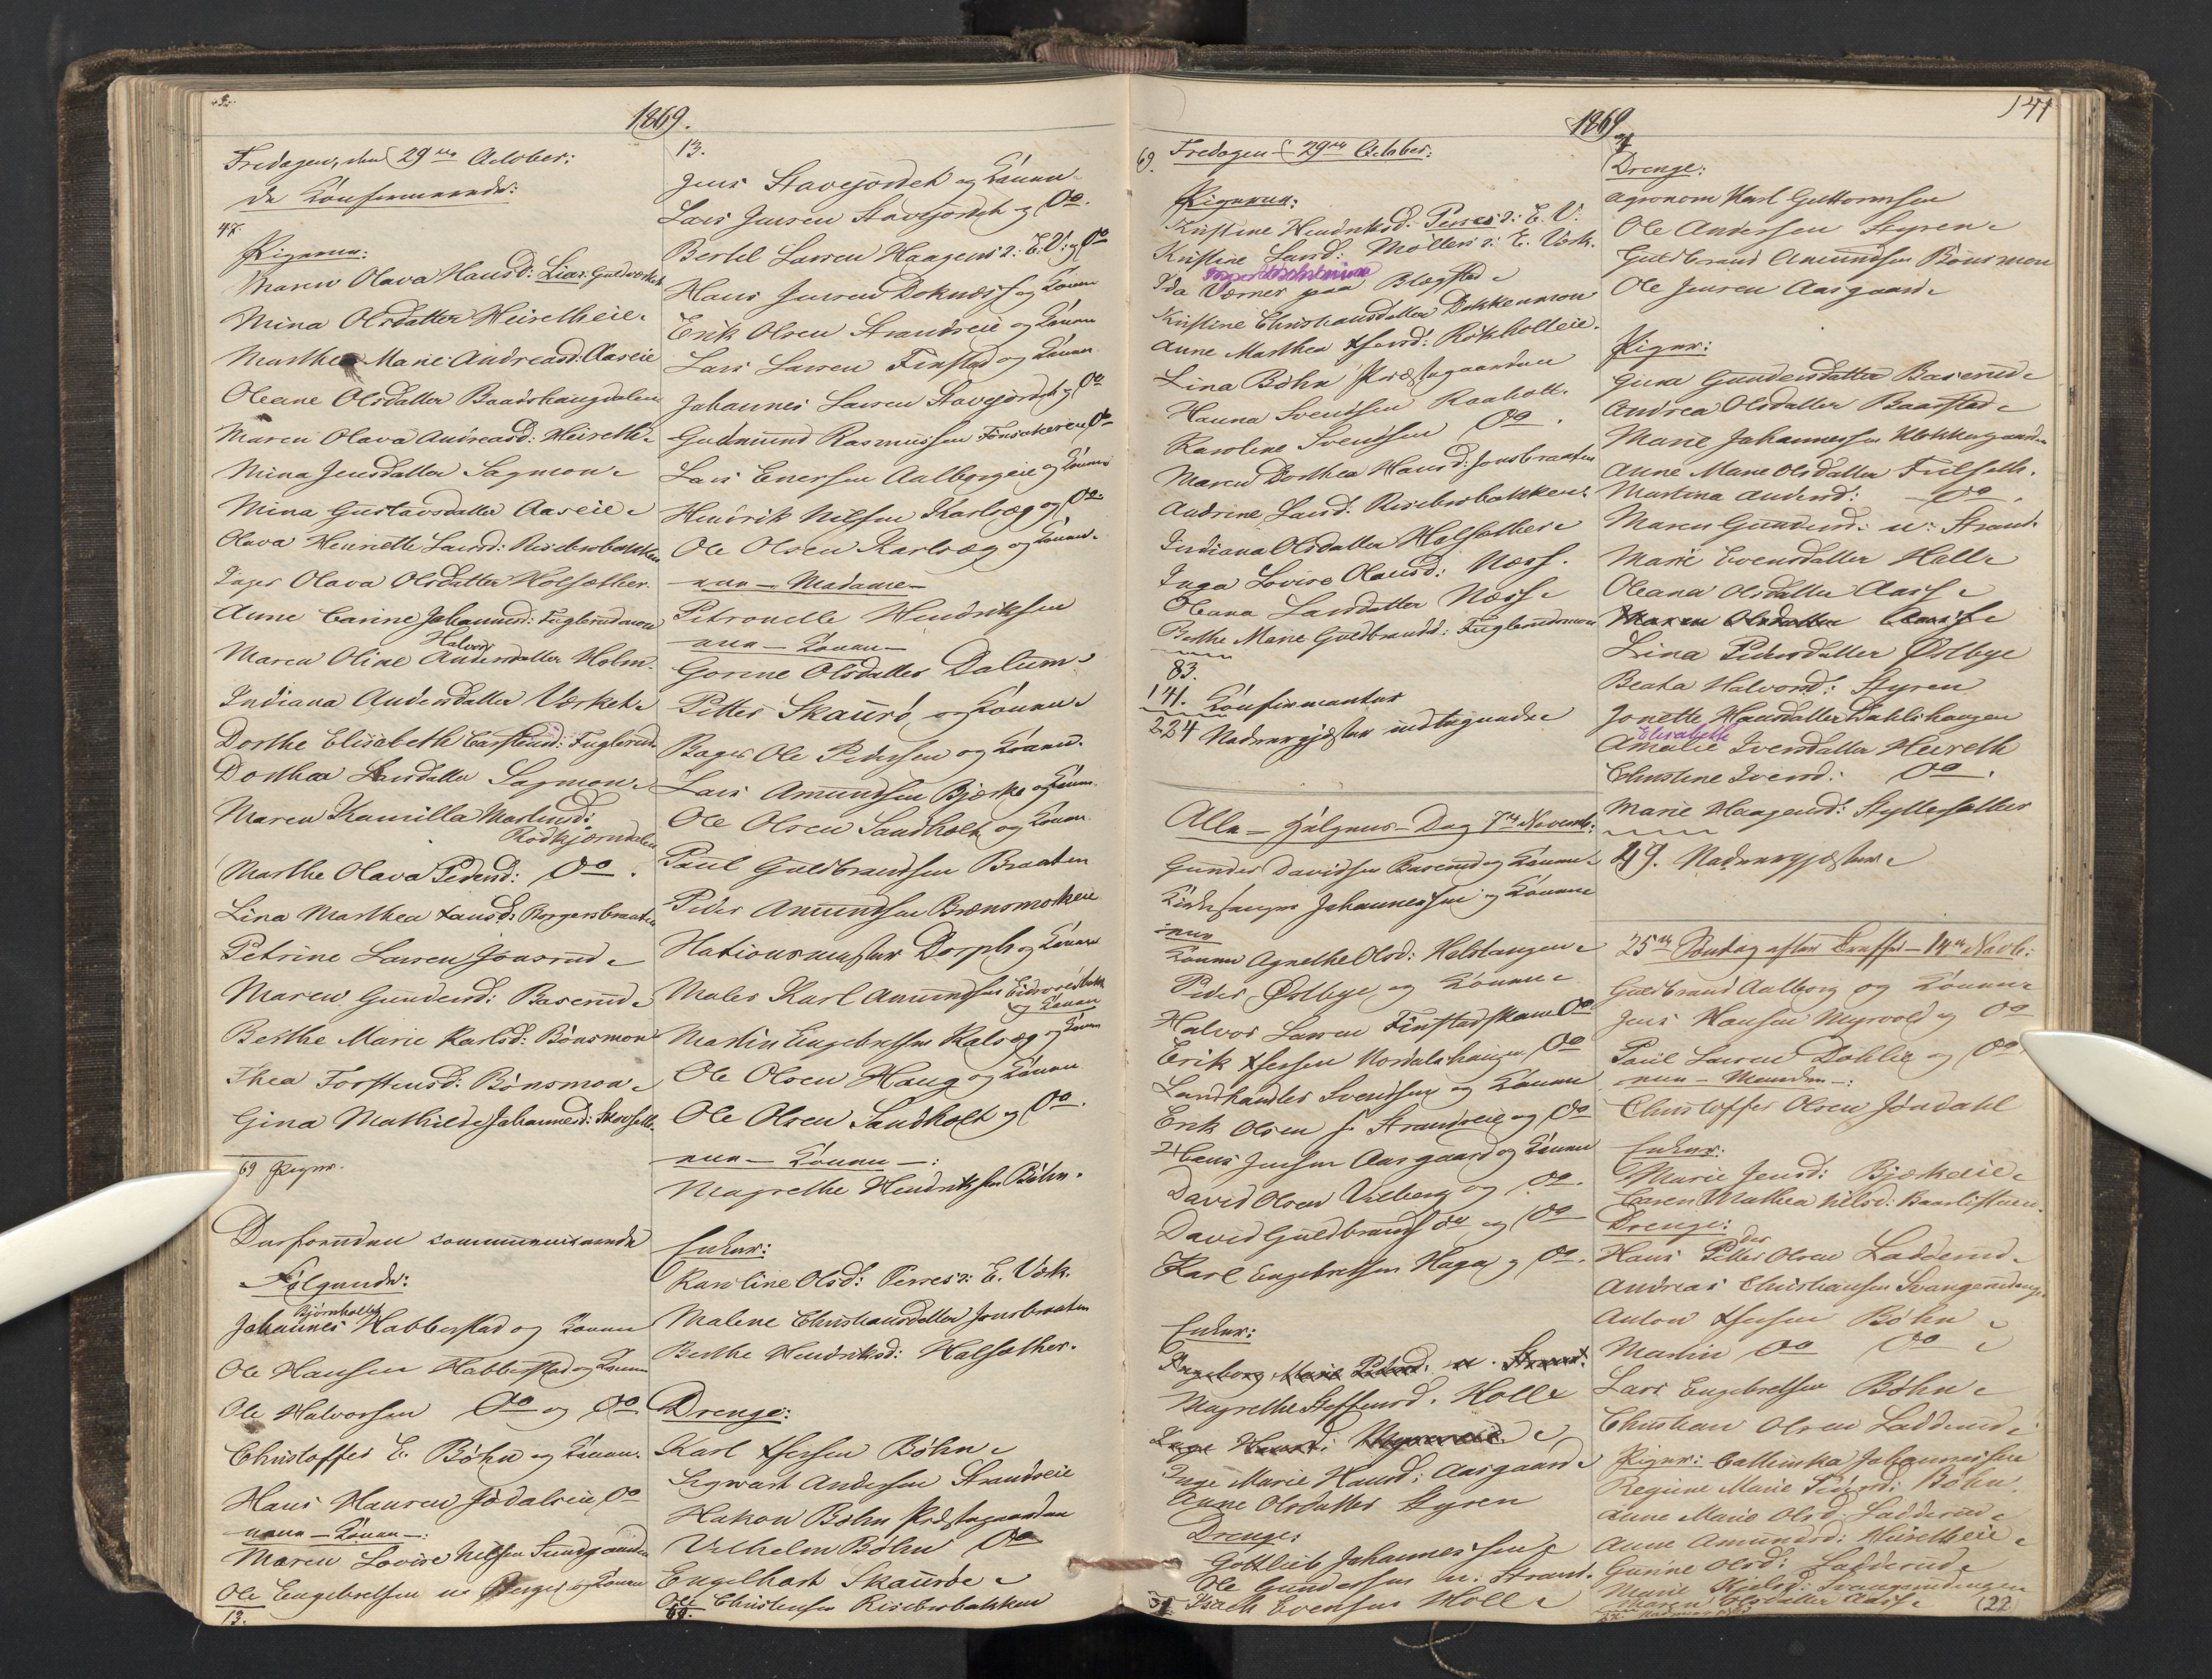 1869.
Fredagen, den 29de October:
de Konfirmerede:
47.
Pigerne:
Maren Olava Hansd: Lier Guldverket
Mina Olsdatter Heiretheie
Marthe Marie Andreasd: Aaseie
Oleane Olsdatter Baardshaugdalen
Maren Olava Andreasd: Heireth
Mina Jensdatter Sagmon
Mina Gustavsdatter Aaseie
Olava Henriette Larsd: Risebrobakken
Inger Olava Olsdatter Holsæther
Anne Carine Johannesd: Fuglerudmoen
Halvors
Maren Oline Andersdatter Holm
Indiana Andersdatter Værket
Dorthe Elisabeth Carstensd: Fuglerud
Dorthea Larsdatter Sagmon
Maren Kamilla Martinsd:
Rødkjærndalen
Marthe Olava Pedersd: Do.
Lina Marthea Hansd: Borgersbraaten
Petrine Larsen Jonsrud
Maren Gundersd: Baserud
Berthe Marie Karlsd: Bønsmoen
Thea Torstensd: Bønsmoen
Gina Mathilde Johannesd: Skovseth
69 Piger.
Desforuden communicerede
Følgende:
Bjørnholtet
Johannes Habberstad og Konen
Ole Hansen Habberstad og Konen
Ole Halvorsen Do og Do
Christoffer E. Bøhn og Konen.
Hans Hansen Jødalseie Do
nun – Konen –:
Maren Lovise Nilsen Sundgaarden
Ole Engebretsen u: Berger og Konen
13.
13.
Jens Stavejordet og Konen
Lars Jensen Stavejordet og Do.
Bertel Larsen Haagens s: E. V: og Do
Hans Jensen Doknæss og Konen
Erik Olsen Strandseie og Konen
Lars Larsen Finstad og Konen
Johannes Larsen Stavejordet og Do
Gudmund Rasmussen Tonsakeren Do
Lars Enersen Aalborgeie og Konen
Hendrik Nilsen Karlsæg og Do.
Ole Olsen Karlsæg og Konen
nun – Madame –
Petronelle Hendriksen
nun – Konen –
Gorine Olsdatter Dalum
Petter Skaurø og Konen
Bager Ole Pedersen og Konen
Lars Amundsen Bjerke og Konen
Ole Olsen Sandholt og Konen
Paul Guldbrandsen Braaten
Peder Amundsen Brænsmoken
Stationsmester Dorph og Konen
Maler Karl Amundsen Eidsvoldbakk
og Konen
Martin Engebretsen Kalsæg og Konen
Ole Olsen Haug og Konen
Ole Olsen Sandholt og Do.
nun – Konen –:
Magrethe Hendriksen Bøhn.
Enker:
Karoline Olsd: Perres s: E. Værk.
Malene Christiansdatter Jonsbraaten
Berthe Hendriksd: Holsæther.
Drenge:
Karl Iversen Bøhn
Sigwart Andersen Strandseie
Hakon Bøhn Præstegaarden
Vilhelm Bøhn Do
Engelhart Skaurøe
Ole Christensen Risebrobakken
60.
1869.
141
69.
Fredagen d 29de October:
Pigerne:
Kristine Hendriksd: Perres s: E. V.
Kristine Larsd: Møllers s: E. Værk.
Ida Værnes paa Blegstad
Kristine Christiansdatter Dokkenmoen
Anne Marthea Iversd: Rokholteie.
Lina Bøhn Præstegaarden
Hanna Svendsen Raaholt.
Karoline Svendsen Do.
Maren Dorthea Hansd: Jonsbraaten
Andrine Larsd: Risebrobakken
Indiana Olsdatter Holsæther
Inga Lovise Olausd: Næss.
Oleana Larsdatter Næss
Berthe Marie Guldbrandsd: Fuglerudmoen
83.
141. Konfirmanter
224 Nadvergjæster indtegnede
Alle – Helgens – Dag 7de Novemb:
Gunder Davidsen Baserud og Konen
Kirkesanger Johannessen og Konen
nun
Konen Agnethe Olsd: Helstangen
Peder Østbye og Konen
Halvor Larsen Finstadskam Do
Erik Iversen Nordalshaugen Do
Landhandler Svendsen og Konen
Erik Olsen s. Strandseie og Do
Hans Jensen Aasgaard og Konen
David Olsen Vilberg og Do.
David Guldbrands Do og Do
Karl Engebretsen Haga og Do.
Enker:
Ingeborg Marie Pedersd: u. Strand.
Magrethe Steffensd. Holle
Inge Hansd: Myrereie
Inge Marie Hansd: Aasgaard
Anne Olsdatter Styren
Drenge:
Gottlieb Johannessen
Ole Gundersen u: Strand.
Isach Evensen Holle
31
31
Drenge:
Agronom Karl Guttormsen
Ole Andersen Styren
Guldbrand Amundsen Bønsmoen
Ole Jensen Aasgaard
Piger:
Gina Gundersdatter Baserud
Andrea Olsdatter Baarstad
Marie Johannessen Klokkergaarden
Anne Marie Olsdatter Fulseth.
Martina Andersd: Do.
Maren Gundersd: u: Strand.
Marie Evensdatter Holle
Oleana Olsdatter Aass
Maren Olsdatter Aass
Lina Pedersdatter Østbye
Beata Halvorsd: Styren
Jonette Hansdatter Dahlshaugen
Elisabeth
Amalie Iversdatter Heireth
Christine Iversd: Do.
Marie Haagensd: Styllesæther
49. Nadvergjæster
25de Søndag efter Treffd – 14de Novb:
Guldbrand Aalborg og Konen
Jens Hansen Myrvold og Do
Paul Larsen Døhler og Do
nun – Manden –:
Christoffer Olsen Jøndahl
Enker:
Marie Jensd: Bjerkeeie
Caren Mathea Nilsd: Baarlistuen.
Drenge:
der
Hans Petter Olsen Ladderud
Andreas Christiansen Svangerudengen
Anton Iversen Bøhn
Martin Do Do
Lars Engebretsen Bøhn
Christian Olsen Ladderud
Piger: Cathinka Johannessen
Regine Marie Pedersd: Bøhn.
Anne Marie Olsd: Ladderud
Anne Amundsd: Heiretheie
Gunine Olsd: Ladderud
Marie Kjelsd: Svangerudengen
Maren Olsdatter Aass
(22)